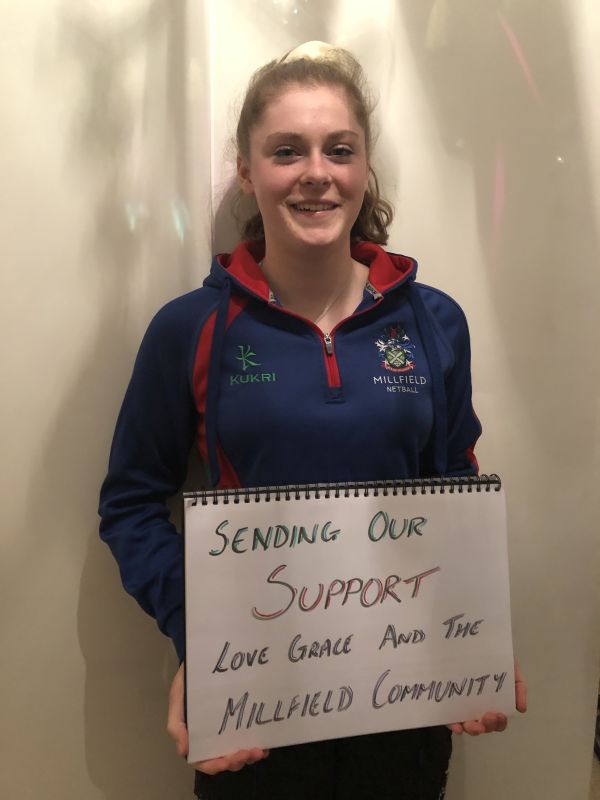 KUKRI
MILLFIELD
NETBALL
SENDING OUR
SUPPORT
LOVE GRACE AND THE
MILLFIELD COMMUNITY